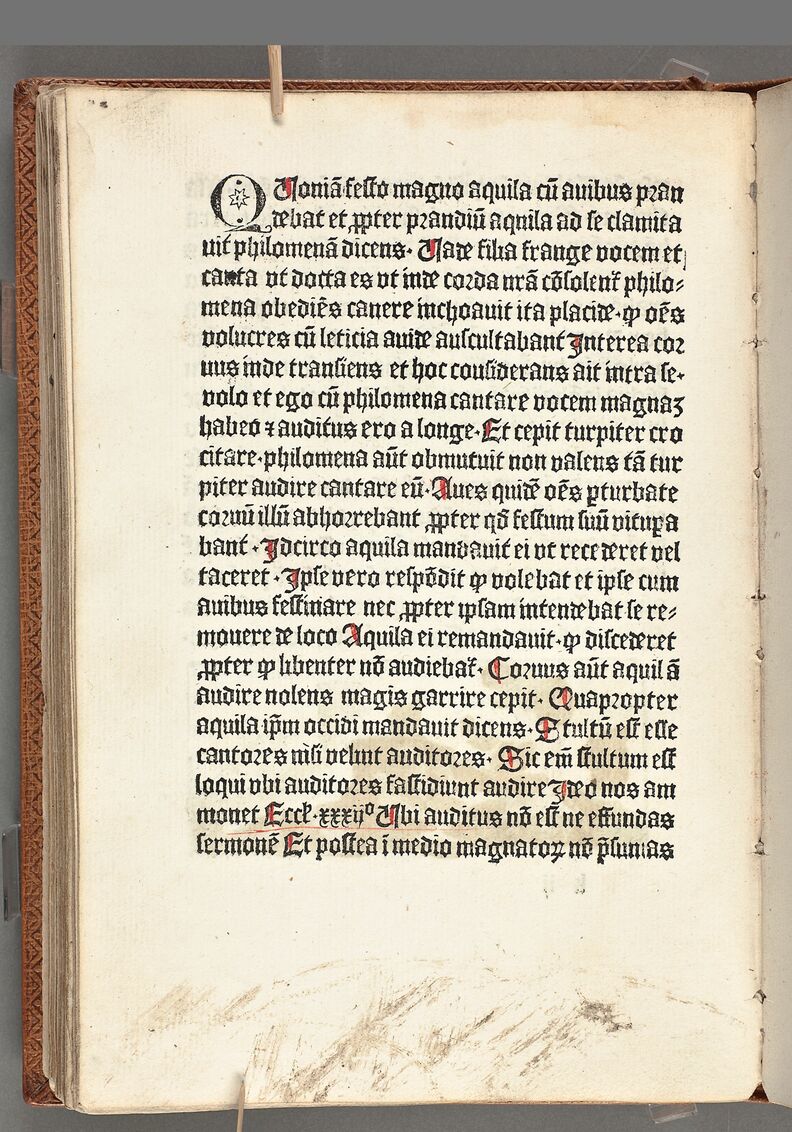 QUoniā festo magno aquila cū auibus pran
debat et ꝓpter prandiū aquila ad se clamita
uit philomenā dicens· Uade filia frange vocem et
canta vt docta es vt inde corda nrā cōsolent᷑ philo⸗
mena obediēs canere inchoauit ita placide·ꝙ oēs
volucres cū leticia auide auscultabant Interea cor
uus inde transiens et hoc considerans ait intra se·
volo et ego cū philomena cantare vocem magnaꝫ
habeo ⁊ auditus ero a longe·Et cepit turpiter cro
citare·philomena aūt obmutuit non valens tā tur
piter audire cantare eū·Aues quidē oēs ꝑturbate
coruū illū abhorrebant ꝓpter qd̄ festum suū vituꝑa
bant᷑ ·Idcirco aquila mandauit ei vt recederet vel
taceret ·Ipse vero respōdit ꝙ volebat et ipse cum
auibus festiuare nec ꝓpter ipsam intendebat se re⸗
mouere de loco Aquila ei remandauit·ꝙ discederet
ꝓpter ꝙ libenter nō audiebat᷑·Coruus aūt aquilā
audire nolens magis garrire cepit· Quapropter
aquila ip̄m occidi mandauit dicens·Stultū est esse
cantores nisi velint auditores· Sic em̄ stultum est
loqui vbi auditores fastidiunt audire Ideo nos am
monet Eccł·xxxijº Ubi auditus nō est ne effundas
sermonē Et postea ī medio magnatoꝝ nō p̄sumas